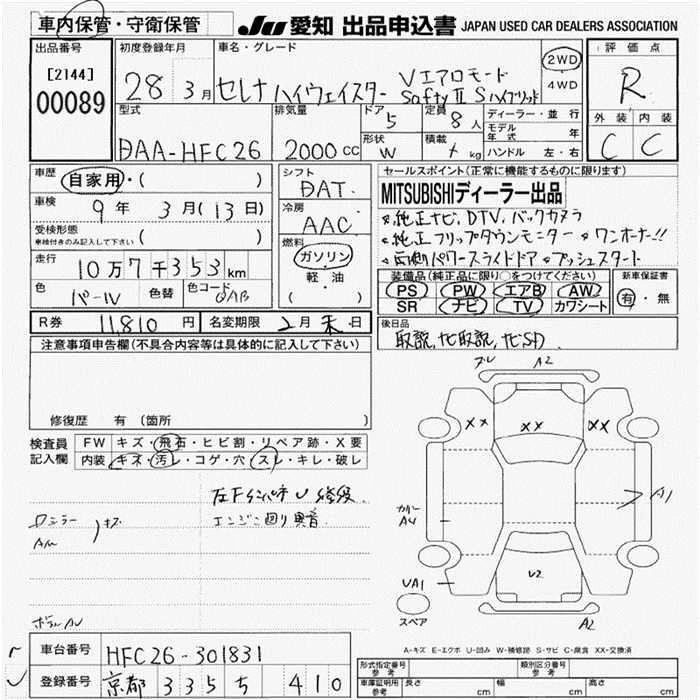 車内保管・守衛保管
JU 愛知 出品申込書 JAPAN USED CAR DEALERS ASSOCIATION
出品番号 初度登録年月 車名・グレード 評価点
[2144] 28 3月 セレナ ハイウェイスター Vエアロモード 2WD R
00089 SaftyⅡ Sハイブリッド ・4WD
型式 排気量 ドア 5 定員 8人 ディーラー・並行 外装 内装
DAA-HFC26 2000cc 形状 W 積載 kg モデル年式 年 C C
ハンドル 左・右
車歴 自家用・( ) シフト DAT セールスポイント(正常に機能するものに限ります)
車検 9年 3月(13日) 冷房 AAC MITSUBISHIディーラー出品
受検形態 ( ) 純正ナビ, DTV, バックカメラ
車検付きのみ記入して下さい
純正フリップダウンモニター ワンオーナー!!
燃料 ガソリン・軽・油 両側パワースライドドア プッシュスタート
走行 10万7千353km 装備品(純正品に限り○をつけてください) 新車保証書
PS PW エアB AW 有・無
色 パール 色替 色コード QAB SR ナビ TV カワシート
R券 11,810円 名変期限 2月末日 後日品
取説, ナビ取説, ナビSD
注意事項申告欄(不具合内容等は具体的に記入して下さい)
修復歴 有 (箇所 )
検査員記入欄 FW キズ・飛石・ヒビ割・リペア跡・X要
内装 キズ・汚レ・コゲ・穴・スレ・キレ・破レ
A2
XX XX XX
左Fインパネ U 修復
エンジン回り異音
A1
A4
UA1
U2
スペア A2
A-キズ E-エクボ U-凹み W-補修跡 S-サビ C-腐食 XX-交換済
車台番号 HFC26-301831
登録番号 京都 335 ち 410
形式指定番号 参考 類別区分番号 参考
車庫証明用 参考 長さ cm 幅 cm 高さ cm